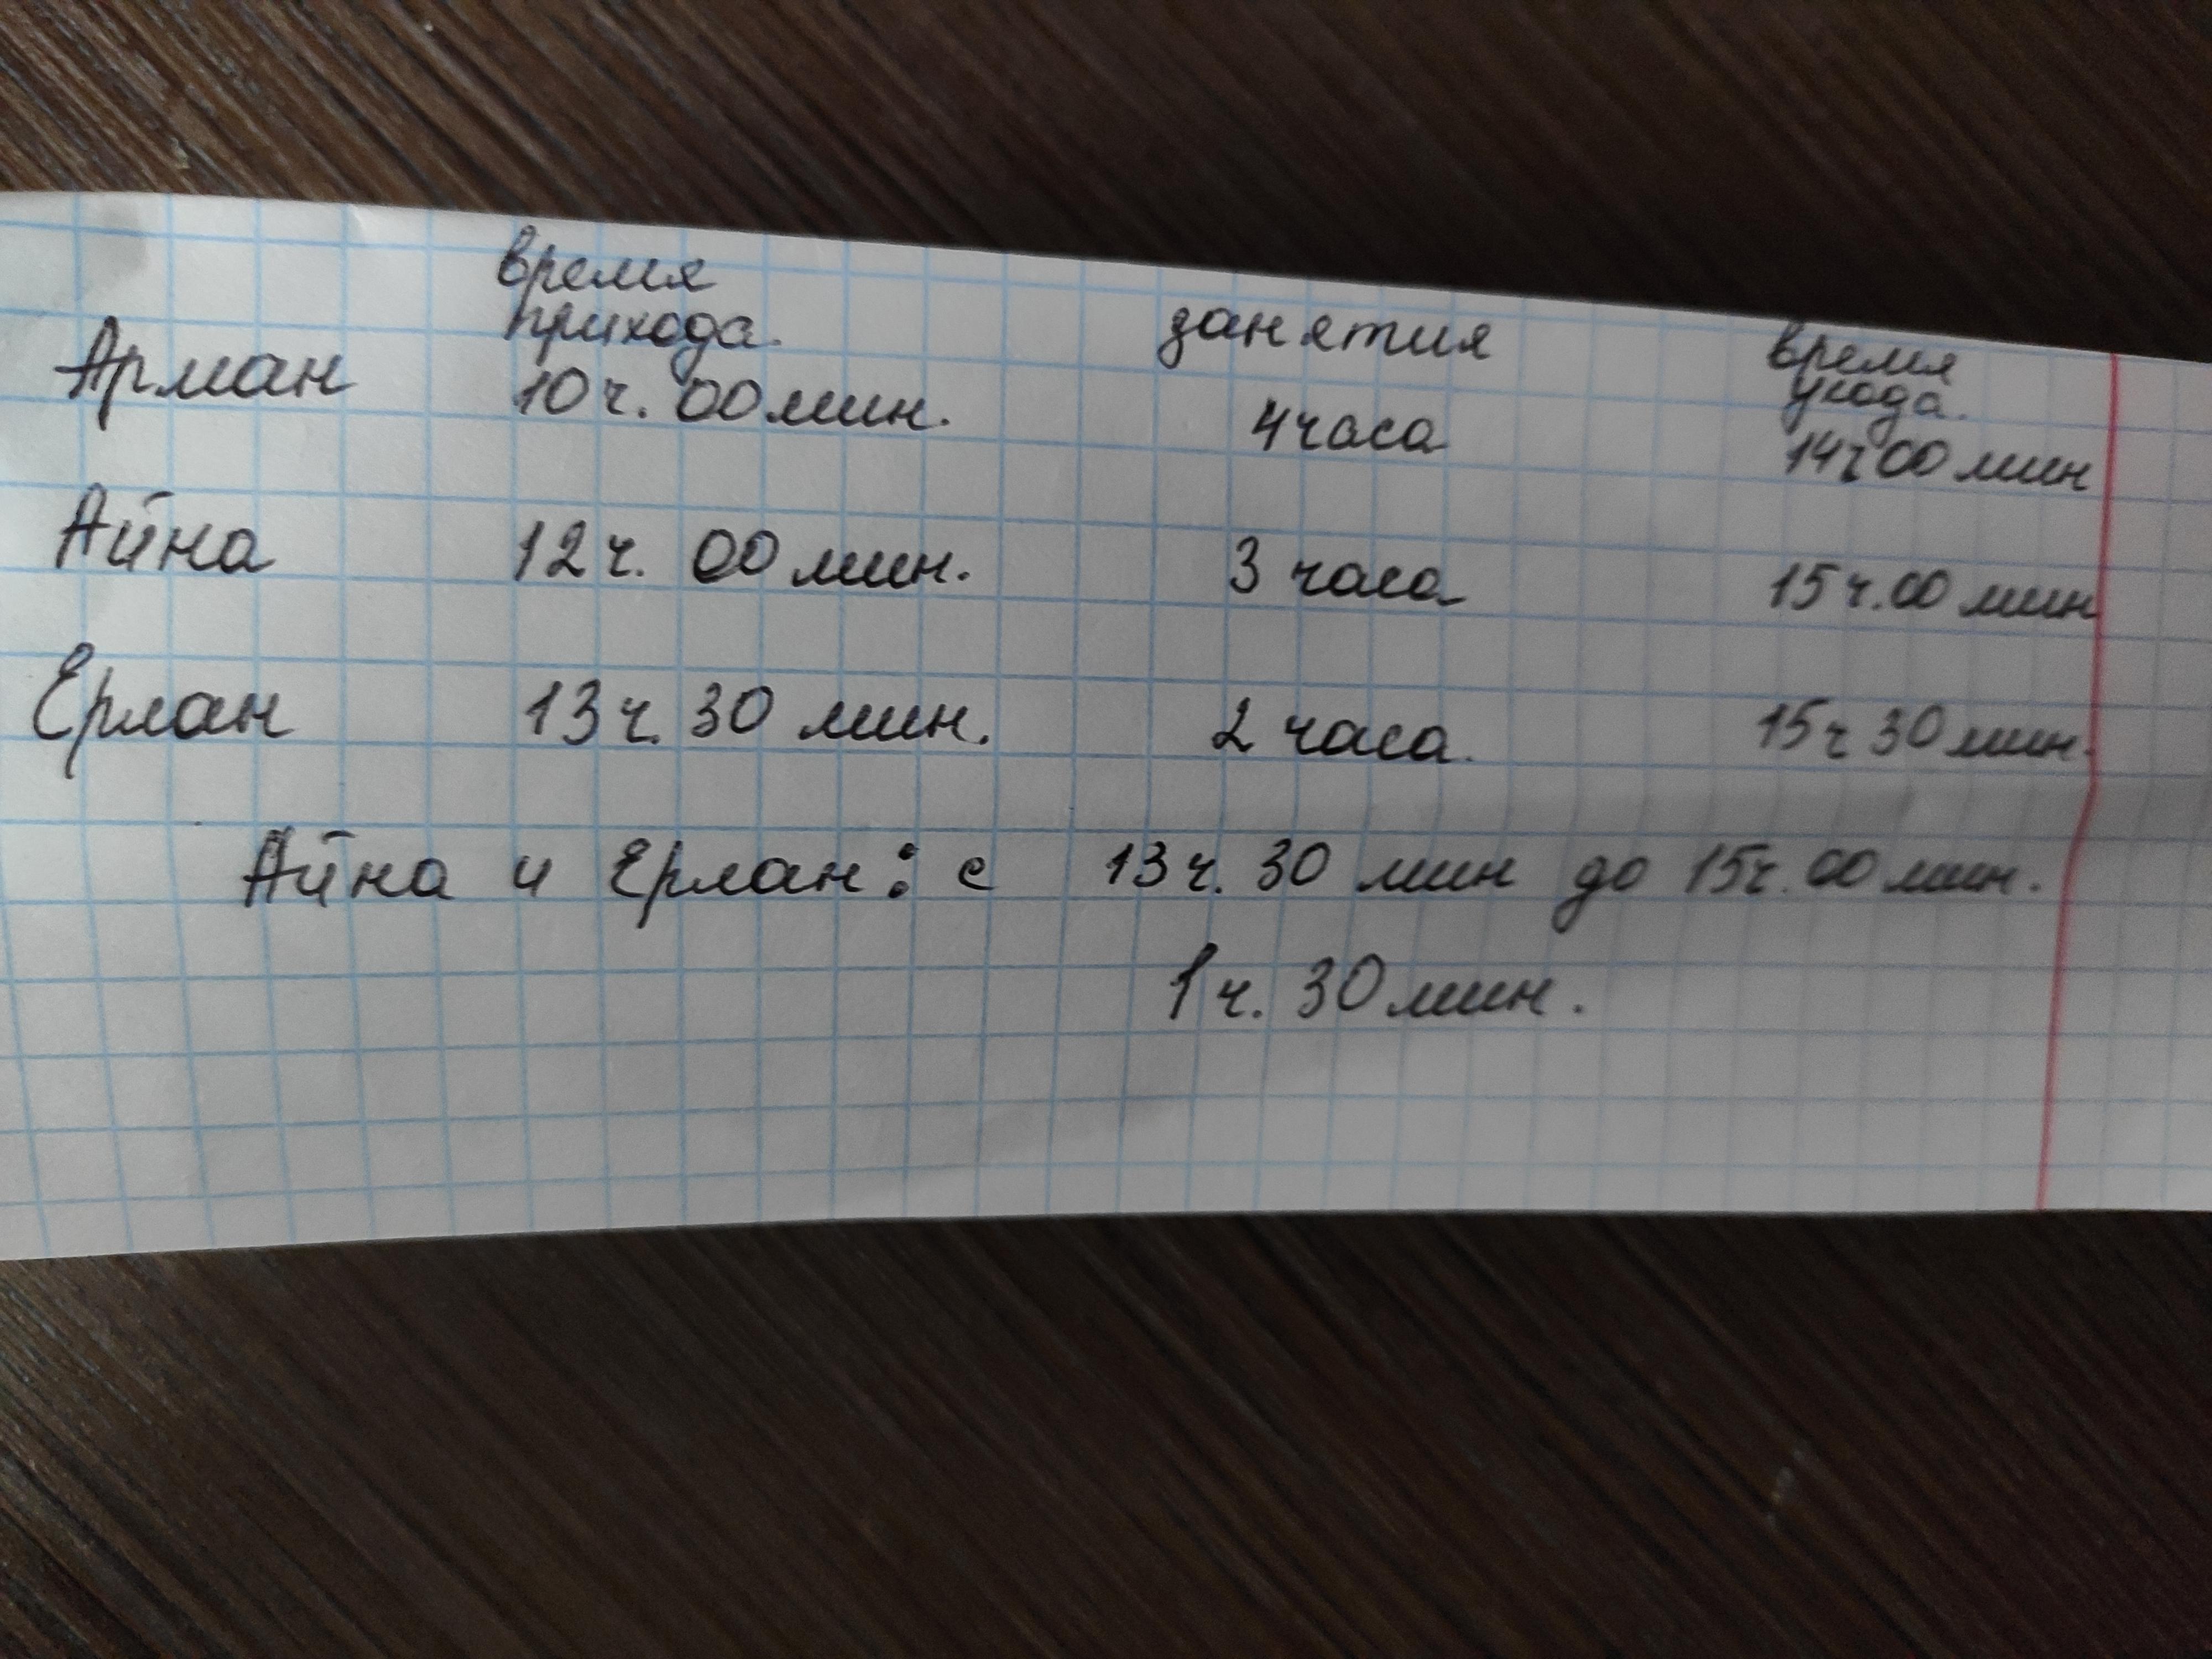 время прихода. занятия время ухода.
Арман 10 ч. 00 мин. 4 часа 14 ч 00 мин
Айна 12 ч. 00 мин. 3 часа 15 ч. 00 мин
Ерлан 13 ч. 30 мин. 2 часа. 15 ч 30 мин.
Айна и Ерлан: с 13 ч. 30 мин до 15 ч. 00 мин.
1 ч. 30 мин.